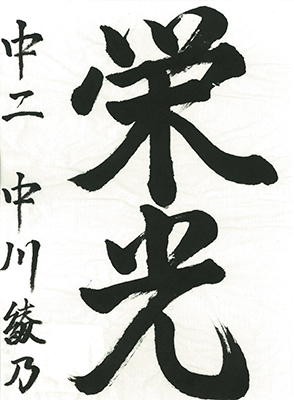 栄光
中二 中川綾乃